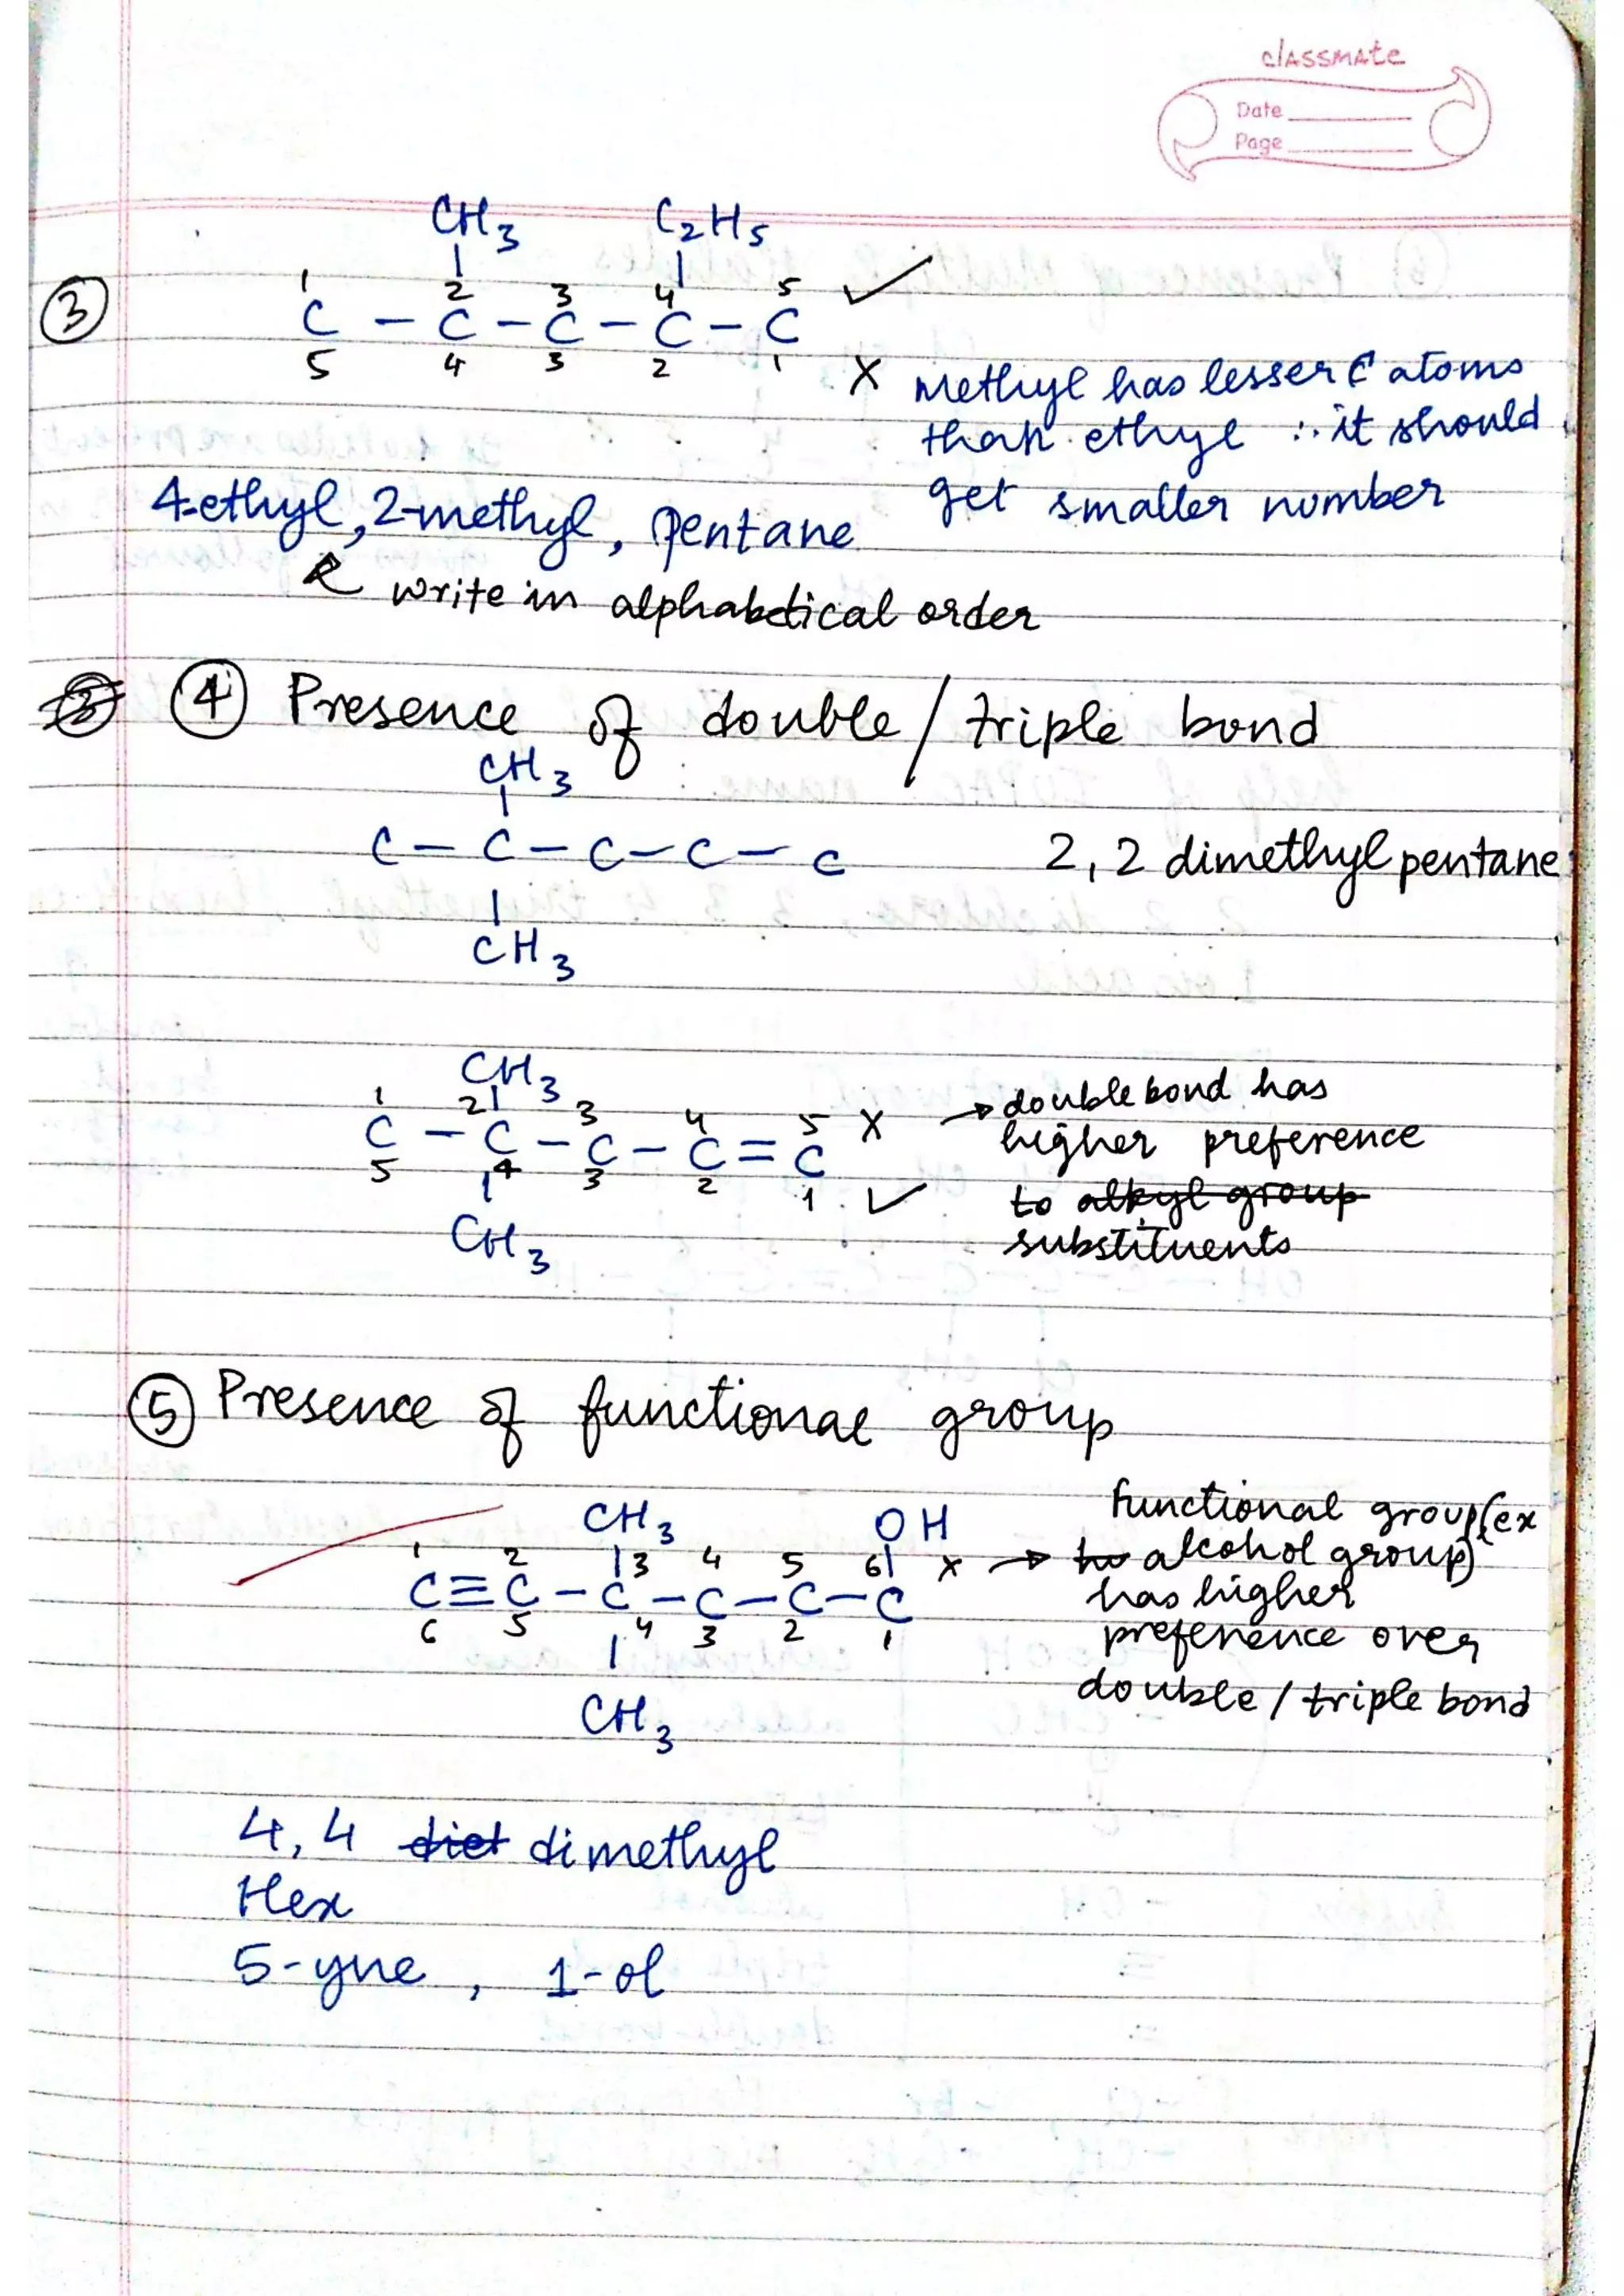 classmate
Date
Page
CH3 C2H5
1 2 3 4 5 ✓
③ C – C – C – C – C
5 4 3 2 1 X Methyl has lesser C atoms
than ethyl ∴ it should
get smaller number
4-ethyl, 2-methyl, Pentane
write in alphabetical order
④ Presence of double/triple bond
CH3
C – C – C – C – C 2,2 dimethyl pentane
CH3
CH3
1 2 3 4 5 X → double bond has
C – C – C – C = C higher preference
5 4 3 2 1 ✓ to alkyl group
CH3 substituents
⑤ Presence of functional group
CH3 OH functional group (ex
1 2 3 4 5 6 X → alcohol group)
C ≡ C – C – C – C – C has higher
6 5 4 3 2 1 preference over
CH3 double/triple bond
4,4 diet dimethyl
Hex
5-yne, 1-ol